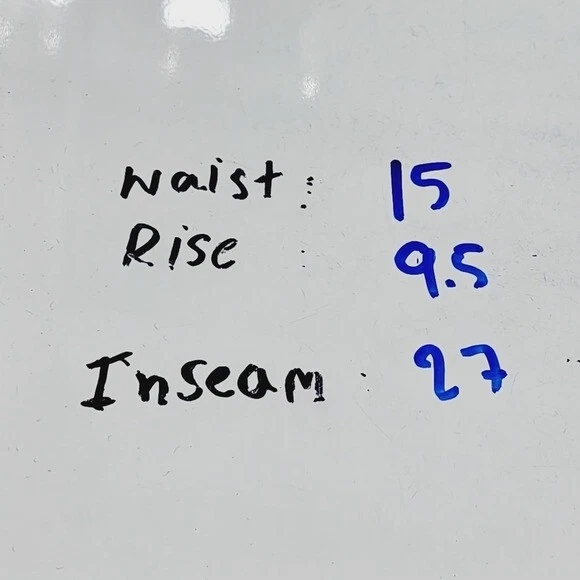 Waist : 15
Rise : 9.5
Inseam : 27